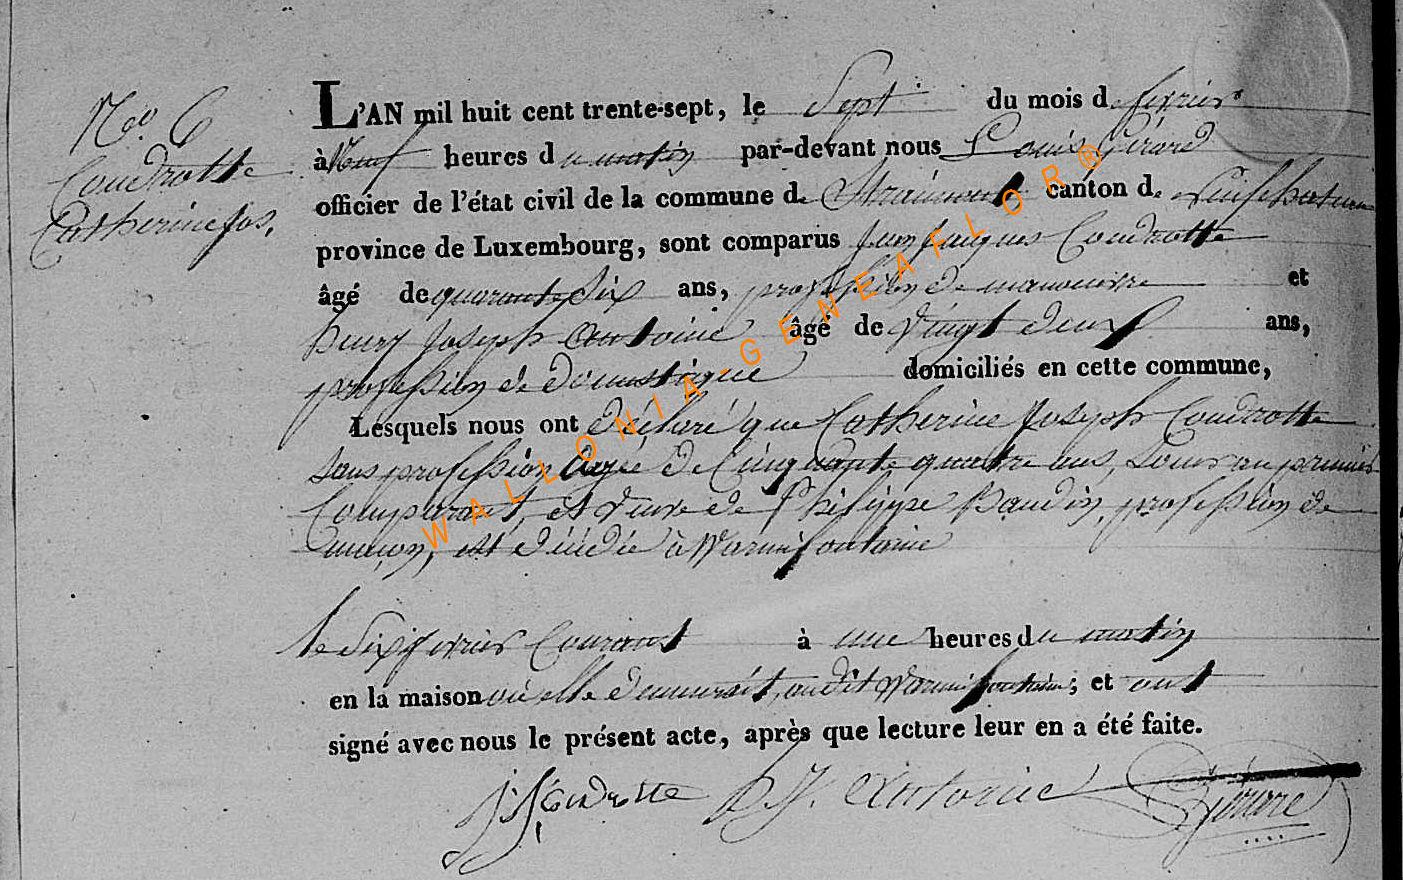 Nro 6
Coudrotte
Catherine Jos.
L'AN mil huit cent trente-sept, le Sept du mois de fevrier
à Neuf heures du matin par-devant nous Louis Gérard
officier de l'état civil de la commune de Straimont canton de Neufchateau
province de Luxembourg, sont comparus Jean Jacques Coudrotte
âgé de quarante Six ans, profession de manouvre et
henry Joseph Antoine âgé de Vingt deux ans,
profession de domestique domiciliés en cette commune,
Lesquels nous ont déclaré que Catherine Joseph Coudrotte
sans profession agée de Cinquante quatre ans, Soeur au premier
Comparant, et veuve de Philippe Baudin, profession de
maçon, est décédée à Warmifontaine
le Six fevrier Courant à une heures du matin
en la maison où elle demeurait, audit Warmifontaine; et ont
signé avec nous le présent acte, après que lecture leur en a été faite.
JJ Coudrotte H J. Antoine Gérard
WALLONIA-GENEAFLOR®